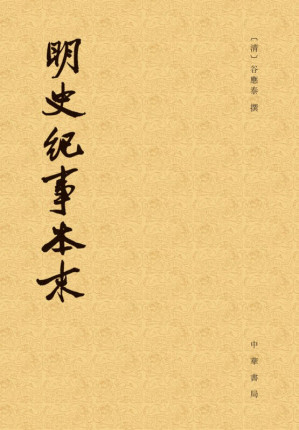 〔清〕谷應泰 撰
明史紀事本末
中華書局